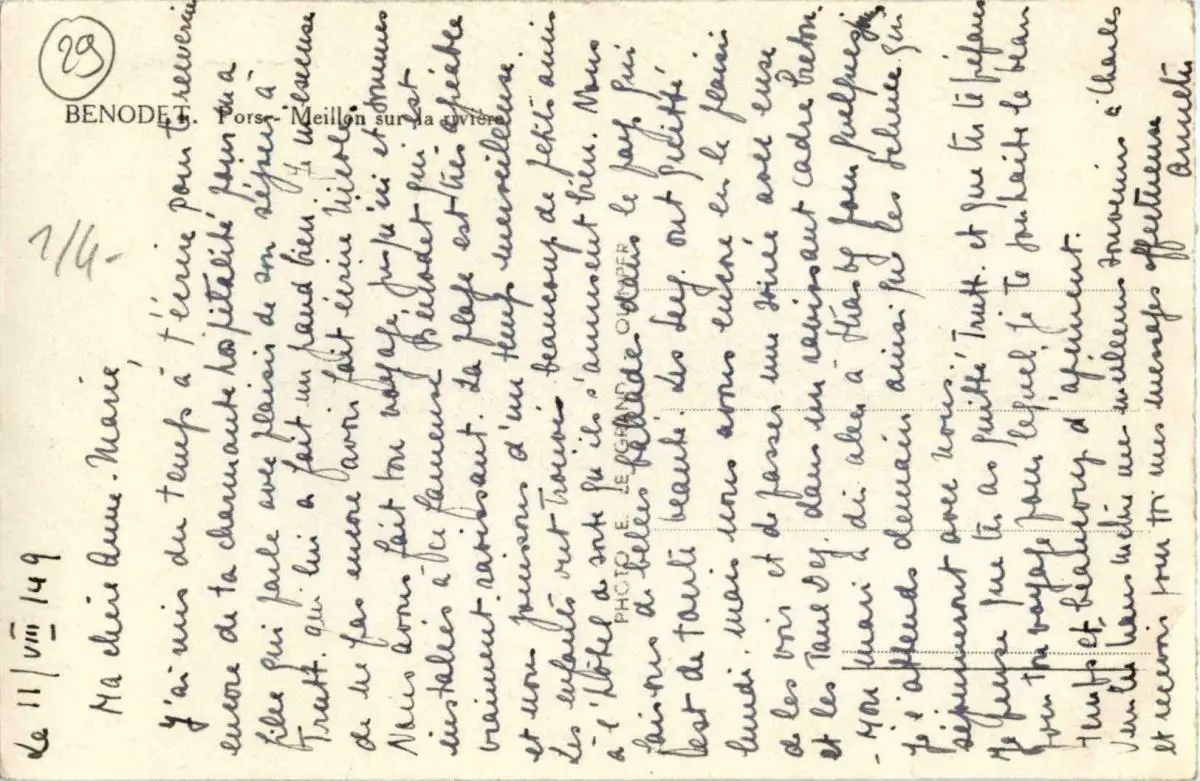 29
BENODET. Pors - Meillon sur la rivière
1/4-
PHOTO LE GRAND QUIMPER
Le 11/VIII/49
Ma chère Anne-Marie,
J'ai mis du temps à t'écrire pour te remercier
encore de ta charmante hospitalité pour ma
fille qui parle avec plaisir de son séjour à
Trutt. qui lui a fait un grand bien. Je m'excuse
de ne pas encore avoir fait écrire Nicole.
Nous avons fait bon voyage jusqu'ici et sommes
installés à ce fameux Bénodet qui est
vraiment ravissant. La plage est très agréable
et nous jouissons d'un temps merveilleux.
Les enfants ont trouvé beaucoup de petits amis
à l'hôtel de sorte qu'ils s'amusent bien. Nous
faisons de belles balades dans le pays qui
est de toute beauté. Les ont quitté
lundi. mais nous avons encore eu le plaisir
de les voir et de passer une soirée avec eux
et les dans un ravissant cadre breton.
- Mon mari a dû aller à pour quelques jrs
Je l'attends demain ainsi que les qui
séjourneront avec nous.
Je pense que tu as quitté Trutt. et que tu te prépares
pour ton voyage pour lequel je te souhaite le beau
temps et beaucoup d'agrément.
mes meilleurs souvenirs à Charles
et recevoir pour toi mes messages affectueux
Annette